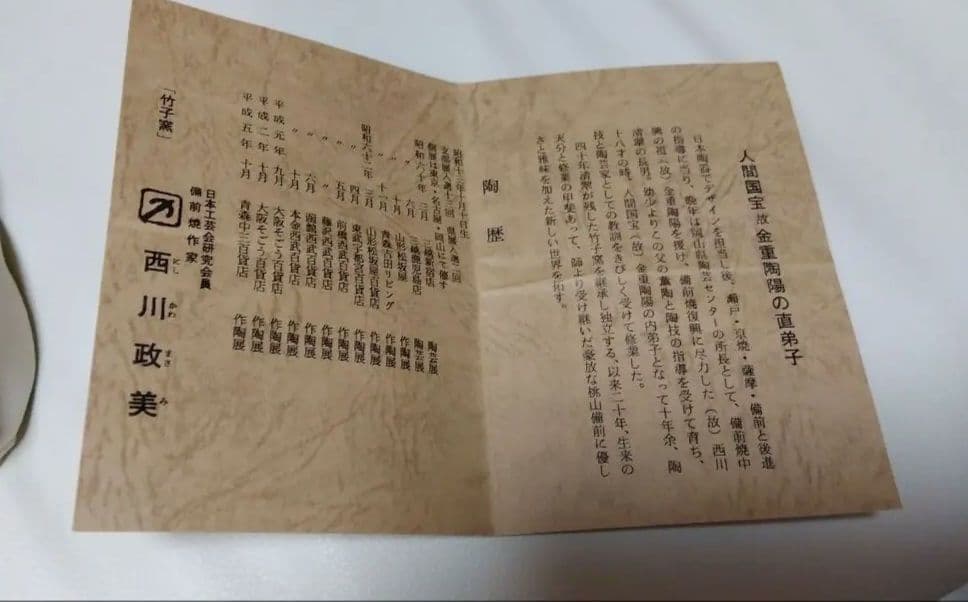 人間国宝 故 金重陶陽の直弟子
日本陶器でデザインを担当し後、瀬戸・京焼・薩摩・備前と後進
の指導に当り、晩年は岡山県陶芸センターの所長として、備前焼中
興の祖(故)金重陶陽を援け、備前焼復興に尽力した(故)西川
清翠の長男。幼少よりその父の薫陶と陶技の指導を受けて育ち、
十八才の時、人間国宝(故)金重陶陽の内弟子となって十年余、陶
技と陶芸家としての教訓をきびしく受けて修業した。
四十年清翠が残した竹子窯を継承し独立する。以来二十年、生来の
天分と修業の甲斐あって、師より受け継いだ豪放な桃山備前に優し
さと雅味を加えた新しい世界を拓す。
陶歴
昭和十三年十月十日生
支部展入選十三回 県展入選二回
個展は東京・名古屋・岡山にて催す
昭和六十年 三月 三越新宿店 陶芸展
〃 六月 三越鹿児島店 陶芸展
〃 十月 山形松坂屋 作陶展
〃 十一月 青森吉田リビング 作陶展
昭和六十二年 三月 山形松坂屋百貨店 作陶展
〃 四月 東武宇都宮百貨店 作陶展
〃 五月 前橋西武百貨店 作陶展
〃 六月 藤沢西武百貨店 作陶展
〃 函館西武百貨店 作陶展
〃 十月 本金西武百貨店 作陶展
平成元年 九月 大阪そごう百貨店 作陶展
平成二年 十月 大阪そごう百貨店 作陶展
平成五年 十月 青森中三百貨店 作陶展
日本工芸会研究会員
備前焼作家
西川政美
にし かわ まさ み
「竹子窯」